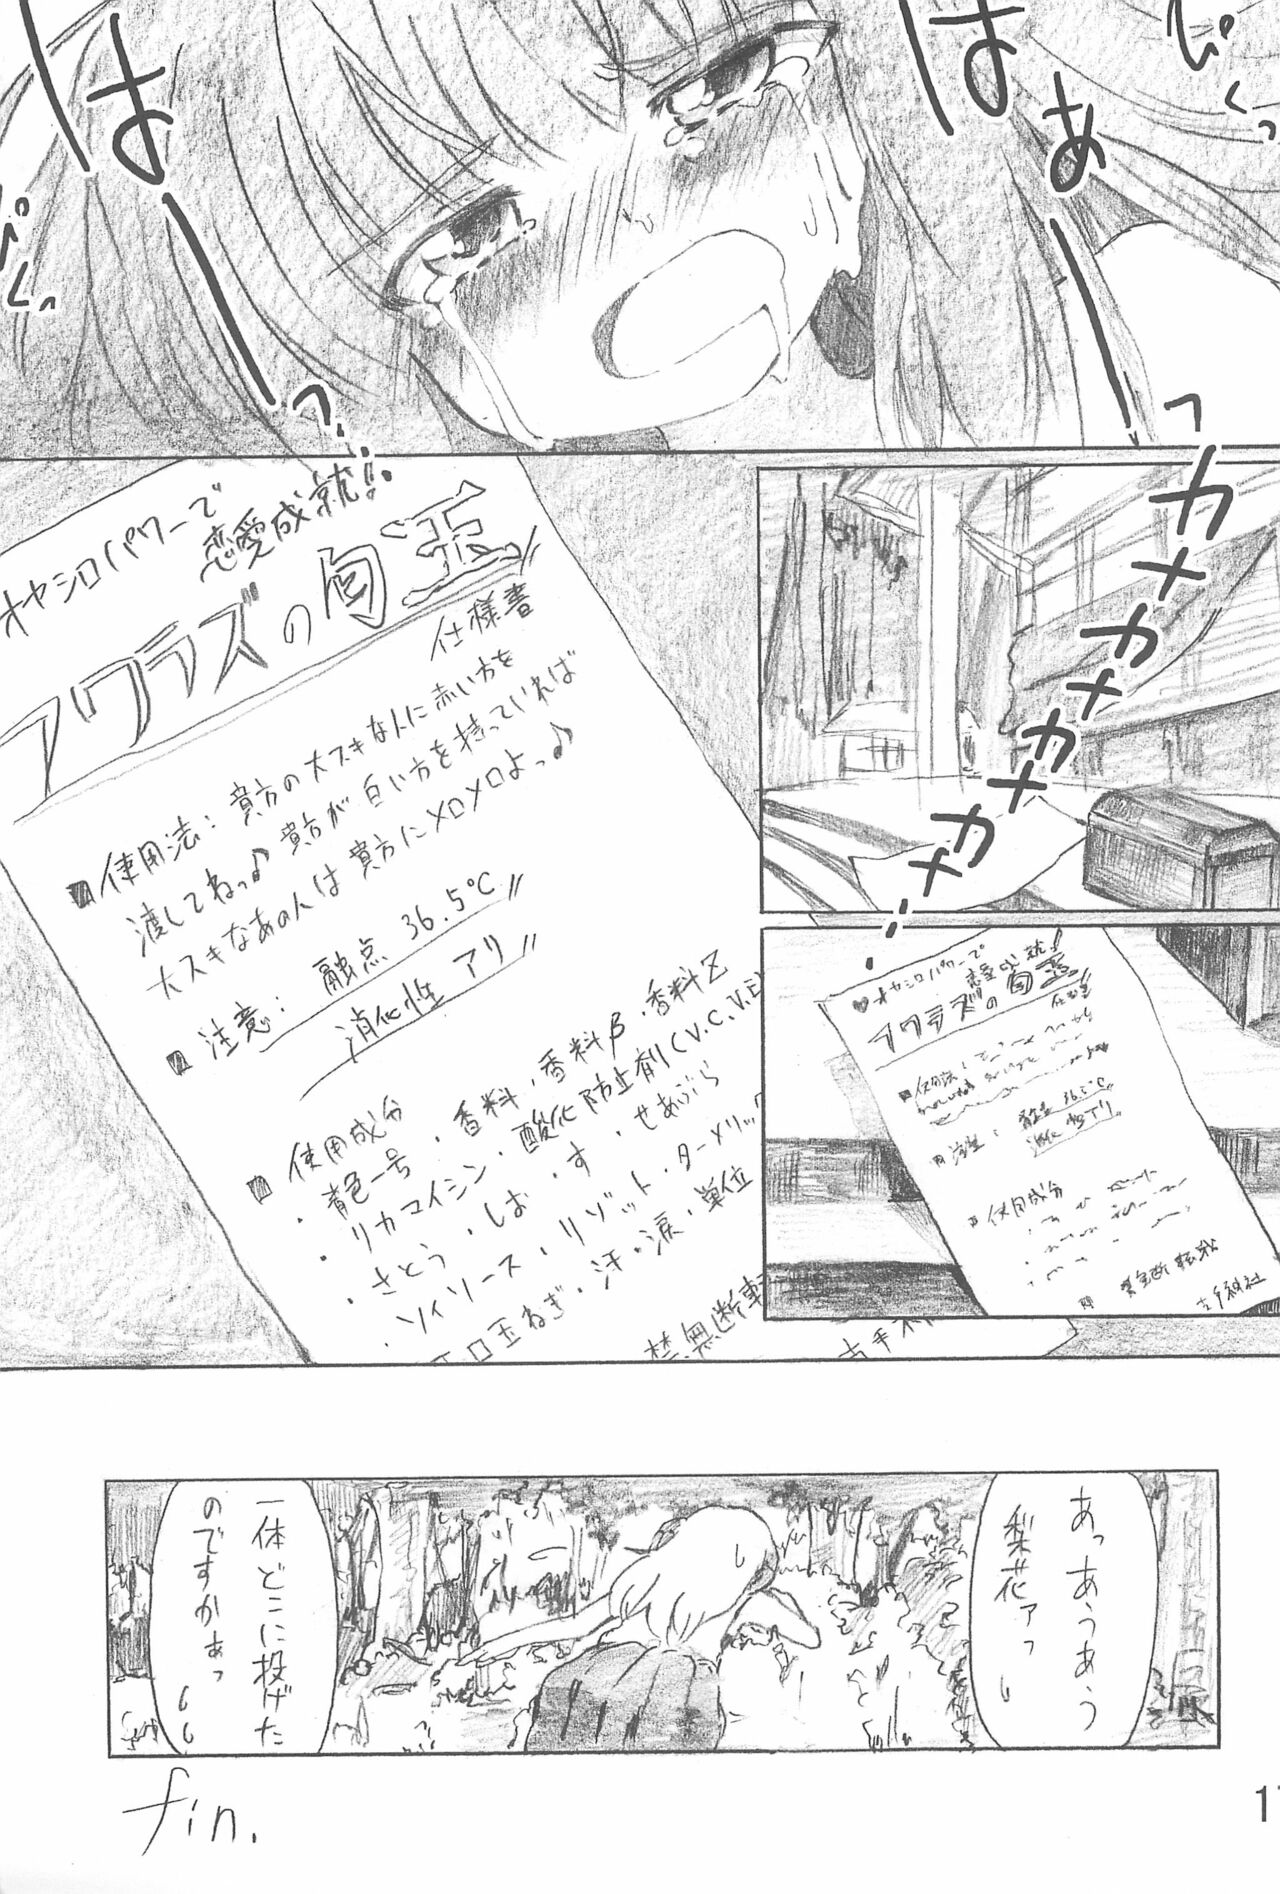 びくっ
はぁ
はーっ
びくっ
カナカナカナカナ…
オヤシロパワーで
恋愛成就!!
フワラズの勾玉
仕様書
■使用法：貴方の大スキな人に赤い方を
渡してねっ♪貴方が白い方を持っていれば
大スキなあの人は貴方にメロメロよっ♪
■注意：融点 36.5℃
消化性 アリ
■使用成分
・青色一号・香料・香料β・香料Z
・リカマイシン・酸化防止剤(V.C,V.E)
・さとう・しお・す・せあぶら
・ソイソース・リゾット・ターメリッ
玉ねぎ・汗・涙・単位
禁無断転
古手
♥オヤシロパワーで
恋愛成就!
フワラズの勾玉
仕様書
■使用法：
■注意：融点 36.5℃
消化性アリ
■使用成分
禁無断転載
古手神社
あっあぅあぅ
梨花ァっ
一体どこに投げた
のですかぁっ
fin.